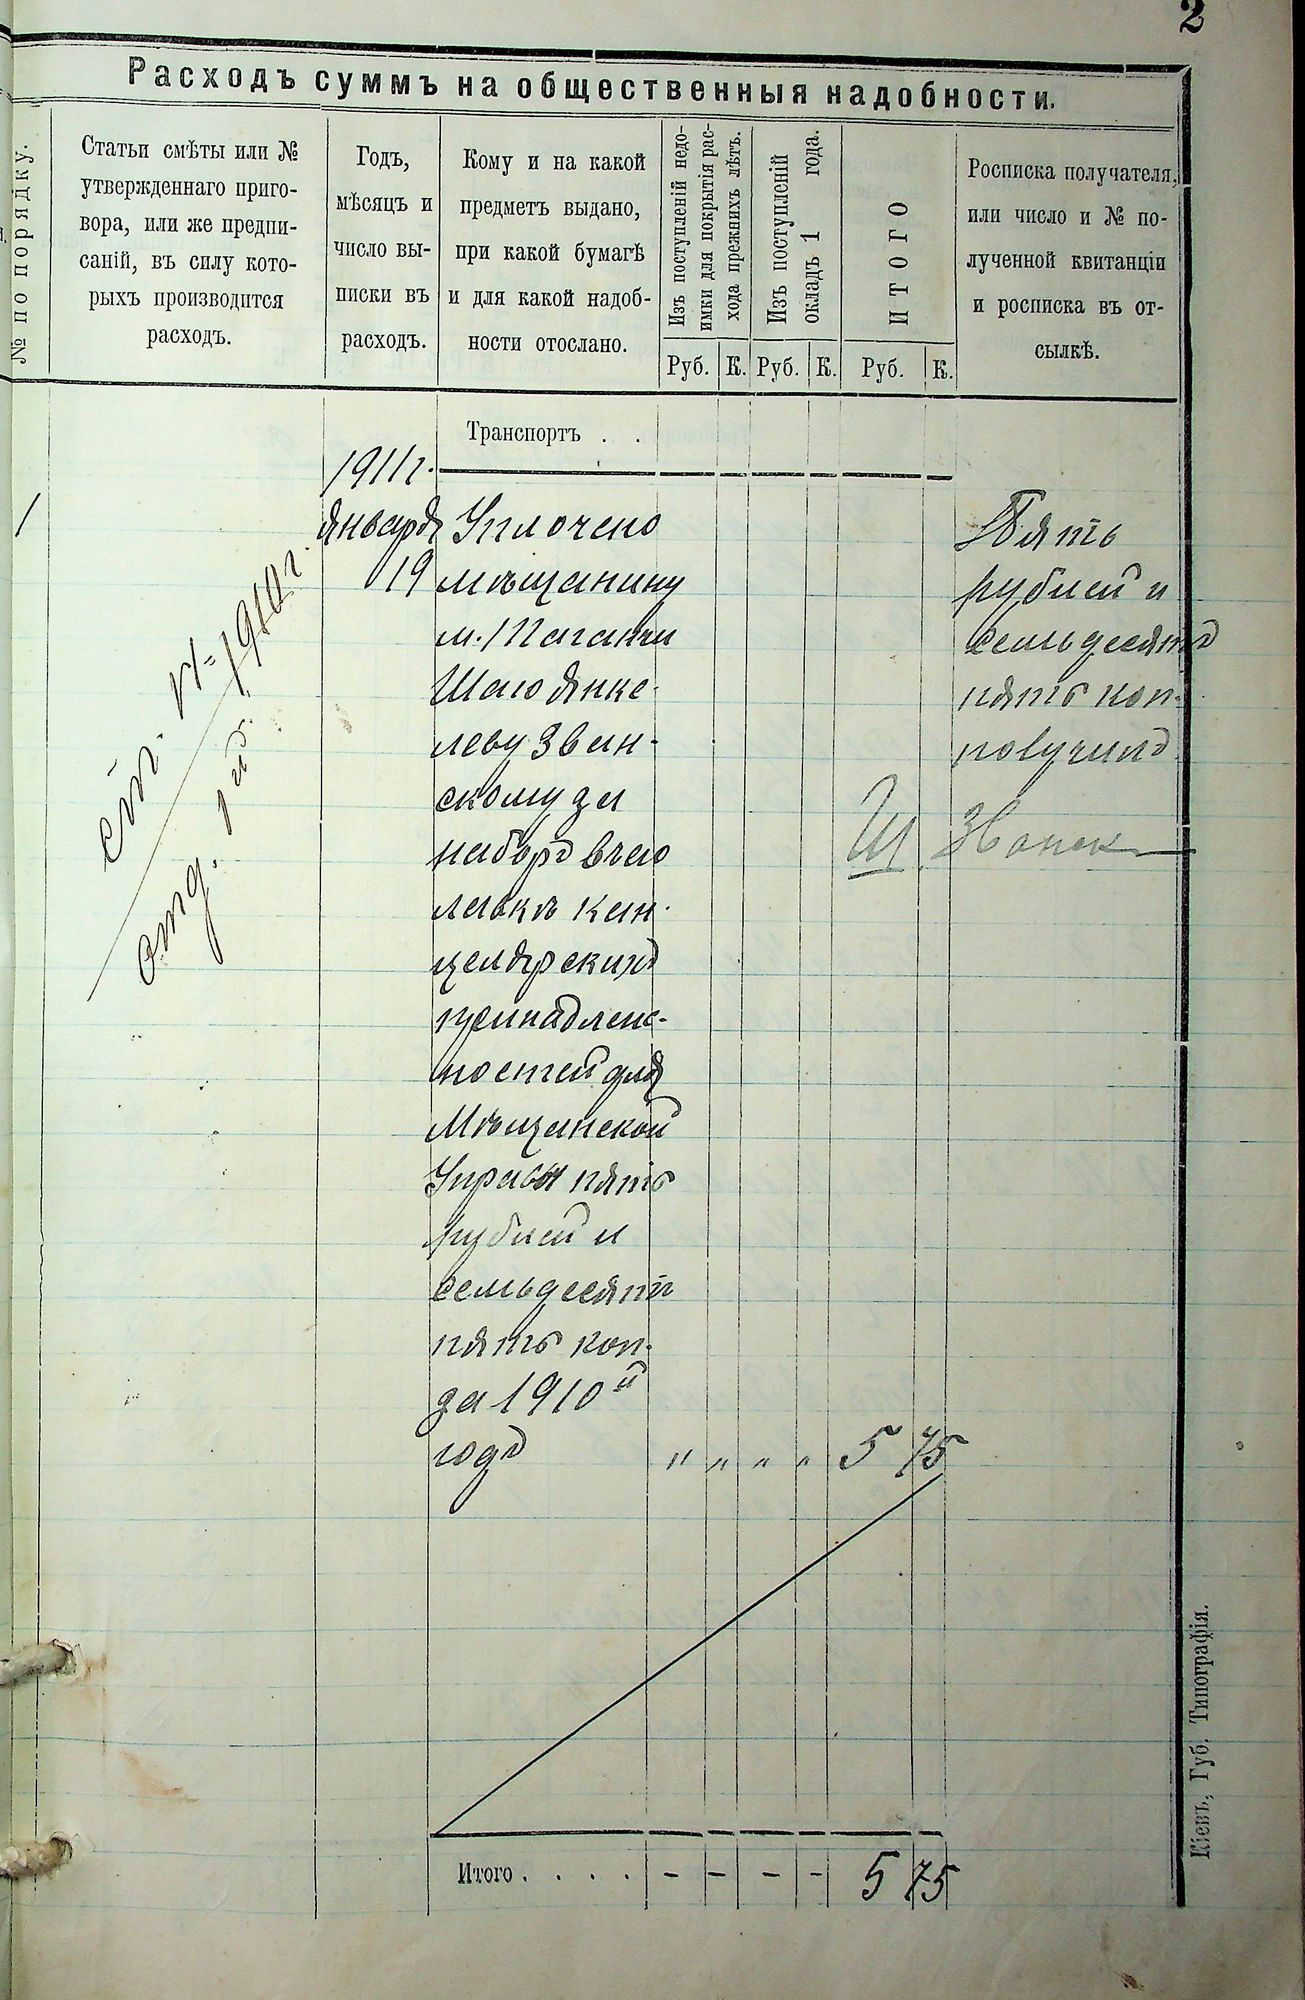 2
Расходъ суммъ на общественныя надобности.
№ по порядку.
Статьи смѣты или №
утвержденнаго приго-
вора, или же предпи-
саній, въ силу кото-
рыхъ производится
расходъ.
Годъ,
мѣсяцъ и
число вы-
писки въ
расходъ.
Кому и на какой
предметъ выдано,
при какой бумагѣ
и для какой надоб-
ности отослано.
Изъ поступленій недо-
имки для покрытія рас-
хода прежнихъ лѣтъ.
Руб. К.
Изъ поступленій
окладъ 1 года.
Руб. К.
ИТОГО
Руб. К.
Росписка получателя,
или число и № по-
лученной квитанціи
и росписка въ от-
сылкѣ.
Транспортъ . .
1
ст. 1910г.
отд. 1й
1911г.
Января
19
Уплочено
мѣщанину
м.
Шаю Янке-
леву Зван-
скому за
наборъ въ его
лавкѣ кан-
целярскихъ
принадлеж-
ностей для
Мѣщанской
Управы пять
рублей и
семьдесятъ
пять коп.
за 1910й
годъ " " " " 5 75
Пять
рублей и
семьдесятъ
пять коп.
получилъ
Ш Званск
Итого . . . . - - - - 5 75
Кіевъ, Губ. Типографія.